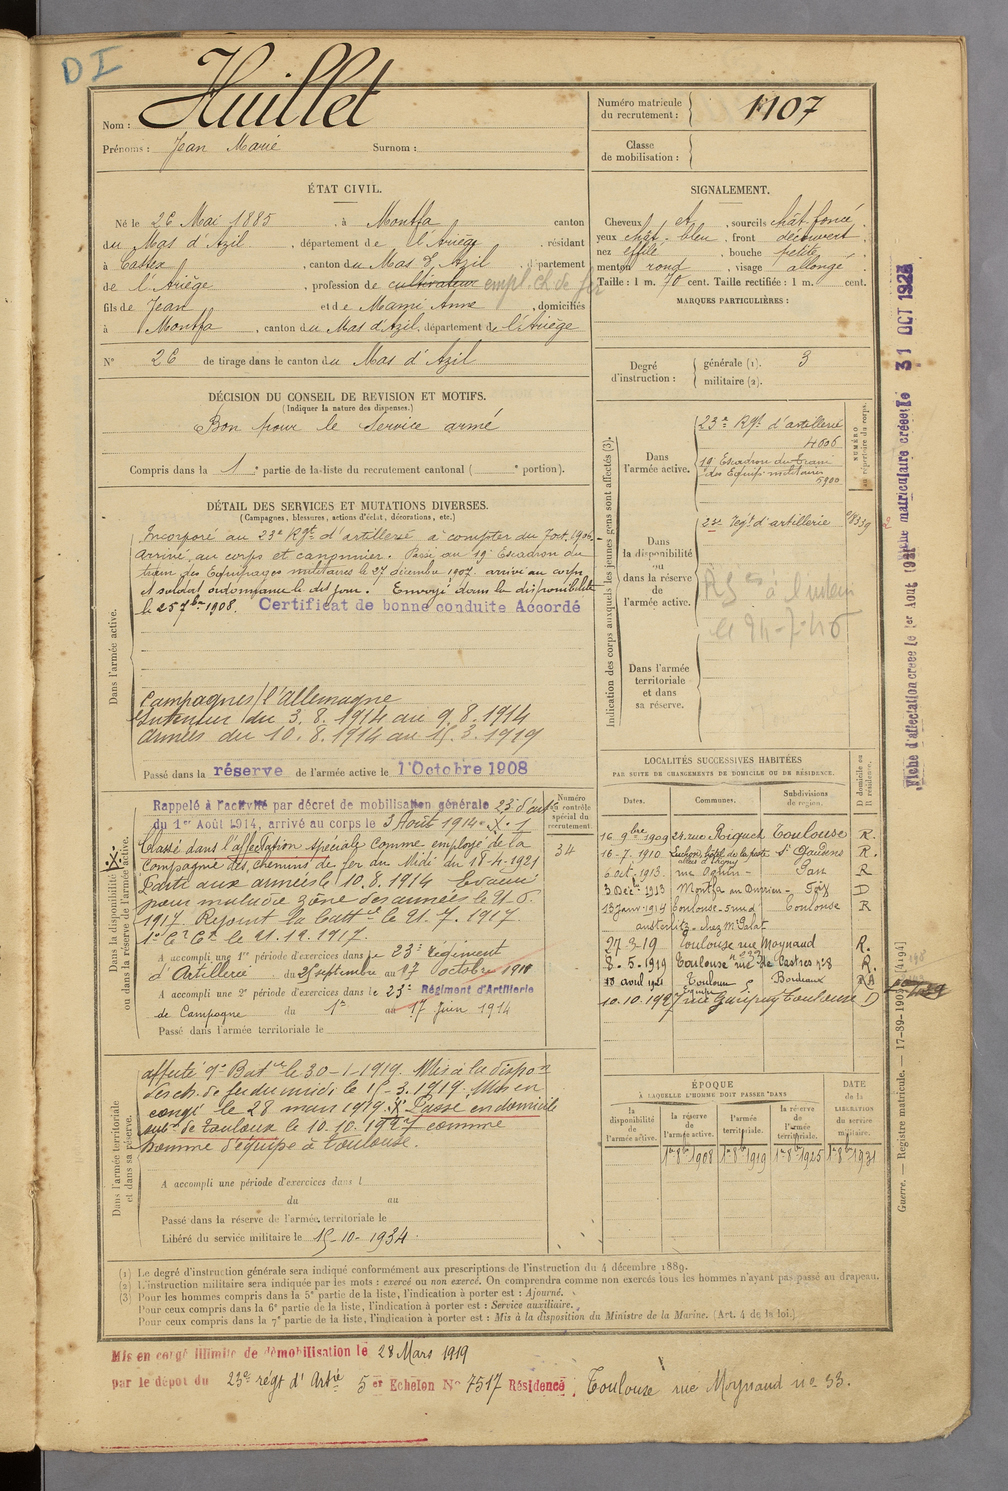 DI
Nom : Huillet
Prénoms : Jean Marie Surnom :
Numéro matricule du recrutement : 1107
Classe de mobilisation :
ÉTAT CIVIL.
Né le 26 Mai 1885, à Montfa canton
du Mas d'Azil, département de l'Ariège, résidant
à Castex, canton du Mas d'Azil département
de l'Ariège, profession de cultivateur empl. ch. de fer
fils de Jean et de Mamy Anne, domiciliés
à Montfa, canton du Mas d'Azil, département de l'Ariège
N° 26 de tirage dans le canton du Mas d'Azil
SIGNALEMENT.
Cheveux et, sourcils chât. foncé
yeux chât. bleu, front découvert
nez effilé, bouche petite
menton rond, visage allongé
Taille : 1 m. 70 cent. Taille rectifiée : 1 m. cent.
MARQUES PARTICULIÈRES :
Degré d'instruction : générale (1). 3
militaire (2).
DÉCISION DU CONSEIL DE REVISION ET MOTIFS.
(Indiquer la nature des dispenses.)
Bon pour le service armé
Compris dans la 1e partie de la liste du recrutement cantonal ( e portion).
DÉTAIL DES SERVICES ET MUTATIONS DIVERSES.
(Campagnes, blessures, actions d'éclat, décorations, etc.)
Dans l'armée active.
Incorporé au 23e Rgt d'artillerie à compter du 7 oct. 1906
arrivé au corps et canonnier. Passé au 19e Escadron du
train des Equipages militaires le 27 décembre 1907. arrivé au corps
et soldat ordonnance le dit jour. Envoyé dans la disponibilité
le 25 7bre 1908. Certificat de bonne conduite Accordé
Campagnes / l'Allemagne
Intérieur du 3.8.1914 au 9.8.1914
Armées du 10.8.1914 au 15.3.1919
Passé dans la réserve de l'armée active le 1 Octobre 1908
Indication des corps auxquels les jeunes gens sont affectés (3).
NUMÉRO au répertoire du corps.
Dans l'armée active.
23e Rgt d'artillerie
4606
19e Escadron du Train
des Equips militaires
5900
Dans la disponibilité ou dans la réserve de l'armée active.
23e Regt d'artillerie
Dans l'armée territoriale et dans sa réserve.
Dans la disponibilité ou dans la réserve de l'armée active.
Numéro au contrôle spécial du recrutement.
34
Rappelé à l'activité par décret de mobilisation générale 23e d'art
du 1er Août 1914, arrivé au corps le 3 Août 1914. X. 1
Classé dans l'affectation spéciale comme employé de la
Compagnie des chemins de fer du Midi du 18-4-1921
Parti aux armées le 10.8.1914 Evacué
pour maladie zone des armées le 21.6.
1917. Rejoint la Battie le 21.7.1917.
1er Cr Ct le 21.12.1917.
A accompli une 1re période d'exercices dans le 23e régiment
d'Artillerie du 25 septembre au 17 octobre 1911
A accompli une 2e période d'exercices dans le 23e Régiment d'Artillerie
de Campagne du 1er au 17 Juin 1914
Passé dans l'armée territoriale le
LOCALITÉS SUCCESSIVES HABITÉES
PAR SUITE DE CHANGEMENTS DE DOMICILE OU DE RÉSIDENCE.
Dates. Communes. Subdivisions de région. D domicile ou R résidence.
16 9bre 1909 24, rue Riquet Toulouse R.
16-7-1910 Luchon, hôtel de la poste St Gaudens R.
6 oct. 1913 Pau R
3 Déc. 1913 Montfa Foix D
13 Janv 1914 Toulouse Toulouse R
austerlitz chez Mr Palat
27-3-19 Toulouse rue Moynaud R.
8.5.1919 Toulouse rue de Castres n°8 R.
18 avril 1921 Toulouse Bordeaux RA
10.10.1927 rue Toulouse D
Dans l'armée territoriale et dans sa réserve.
affecté 9e Batie le 30-1-1919. Mis à la dispon
des ch. de fer du midi le 15-3-1919. Mis en
congé le 28 mars 1919. X Passé en domicile
subon de Toulouse le 10.10.1927 comme
homme d'équipe à Toulouse.
A accompli une période d'exercices dans l
du au
Passé dans la réserve de l'armée territoriale le
Libéré du service militaire le 15-10-1934
ÉPOQUE
À LAQUELLE L'HOMME DOIT PASSER DANS
DATE de la LIBÉRATION du service militaire.
la disponibilité de l'armée active. la réserve de l'armée active. l'armée territoriale. la réserve de l'armée territoriale.
1er 8bre 1908 1er 8bre 1919 1er 8bre 1925 1er 8bre 1931
(1) Le degré d'instruction générale sera indiqué conformément aux prescriptions de l'instruction du 4 décembre 1889.
(2) L'instruction militaire sera indiquée par les mots : exercé ou non exercé. On comprendra comme non exercés tous les hommes n'ayant pas passé au drapeau.
(3) Pour les hommes compris dans la 5e partie de la liste, l'indication à porter est : Ajourné.
Pour ceux compris dans la 6e partie de la liste, l'indication à porter est : Service auxiliaire.
Pour ceux compris dans la 7e partie de la liste, l'indication à porter est : Mis à la disposition du Ministre de la Marine. (Art. 4 de la loi.)
Mis en congé illimité de démobilisation le 28 Mars 1919
par le dépôt du 23e régt d'Artie 5er Echelon N° 7517 Résidence, Toulouse rue Moynaud n° 33.
Fiche d'affectation créée le 1er Août 1921
Fiche matriculaire créée le 31 OCT 1925
Guerre. — Registre matricule. — 17-89-1903 [4194]